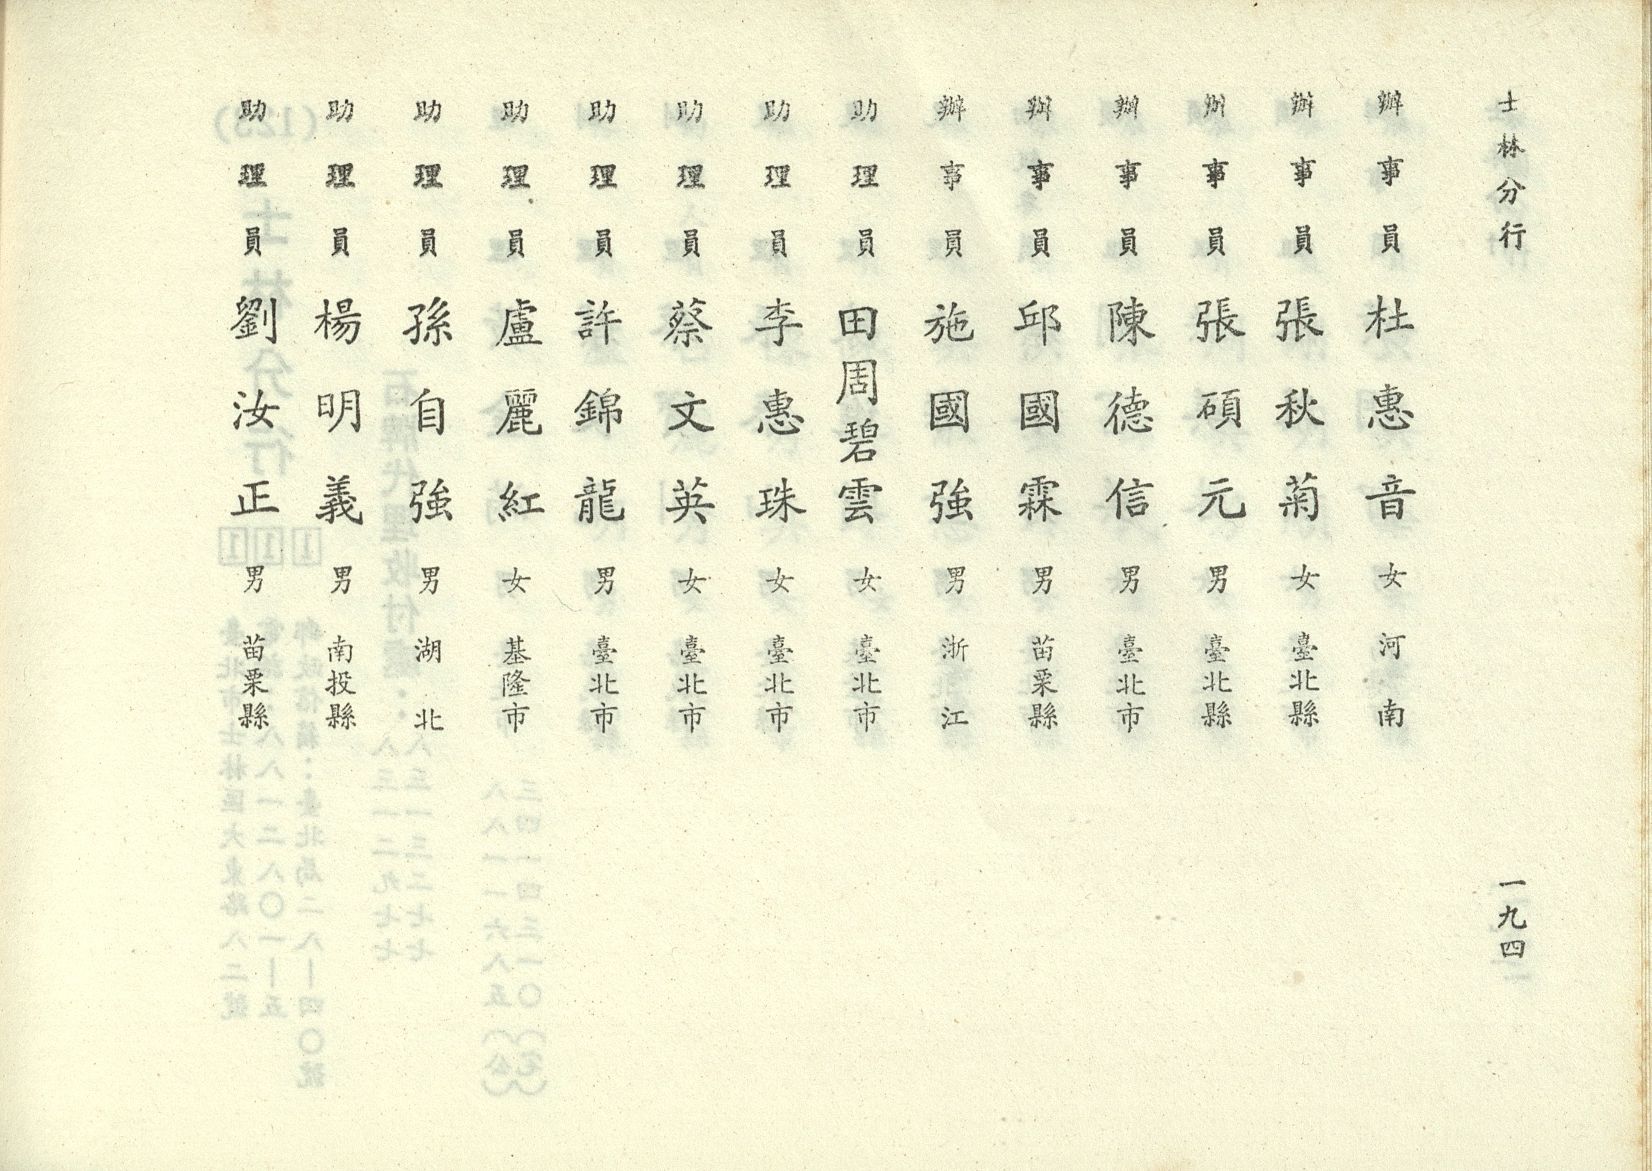 士林分行
辦事員 杜惠音 女 河南
辦事員 張秋菊 女 臺北縣
辦事員 張碩元 男 臺北縣
辦事員 陳德信 男 臺北市
辦事員 邱國霖 男 苗栗縣
辦事員 施國強 男 浙江
助理員 田周碧雲 女 臺北市
助理員 李惠珠 女 臺北市
助理員 蔡文英 女 臺北市
助理員 許錦龍 男 臺北市
助理員 盧麗紅 女 基隆市
助理員 孫自強 男 湖北
助理員 楊明義 男 南投縣
助理員 劉汝正 男 苗栗縣
一九四